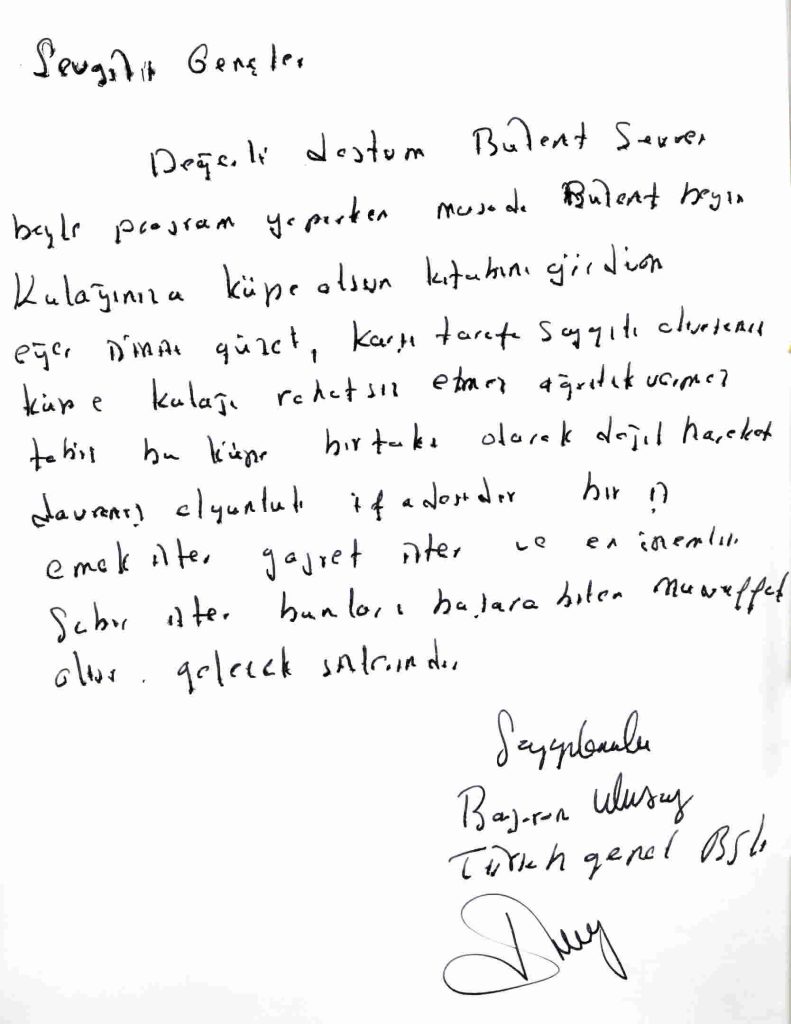 Sevgili Gençler
Değerli dostum Bülent Server
beyle program yaparken masada Bülent beyin
Kulağınıza küpe olsun kitabını gördüm
eğer güzel, karşı tarafa saygılı olursanız
küpe kulağı rahatsız etmez ağırlık vermez
tabii bu küpe bir takı olarak değil hareket
davranış ifadesidir bir iş
emek ister gayret ister ve en önemlisi
Sabır ister bunları başara bilen Muvaffak
olur. gelecek sizlerindir
Saygılarımla
Başaran Ulusoy
Türsab genel Bşk